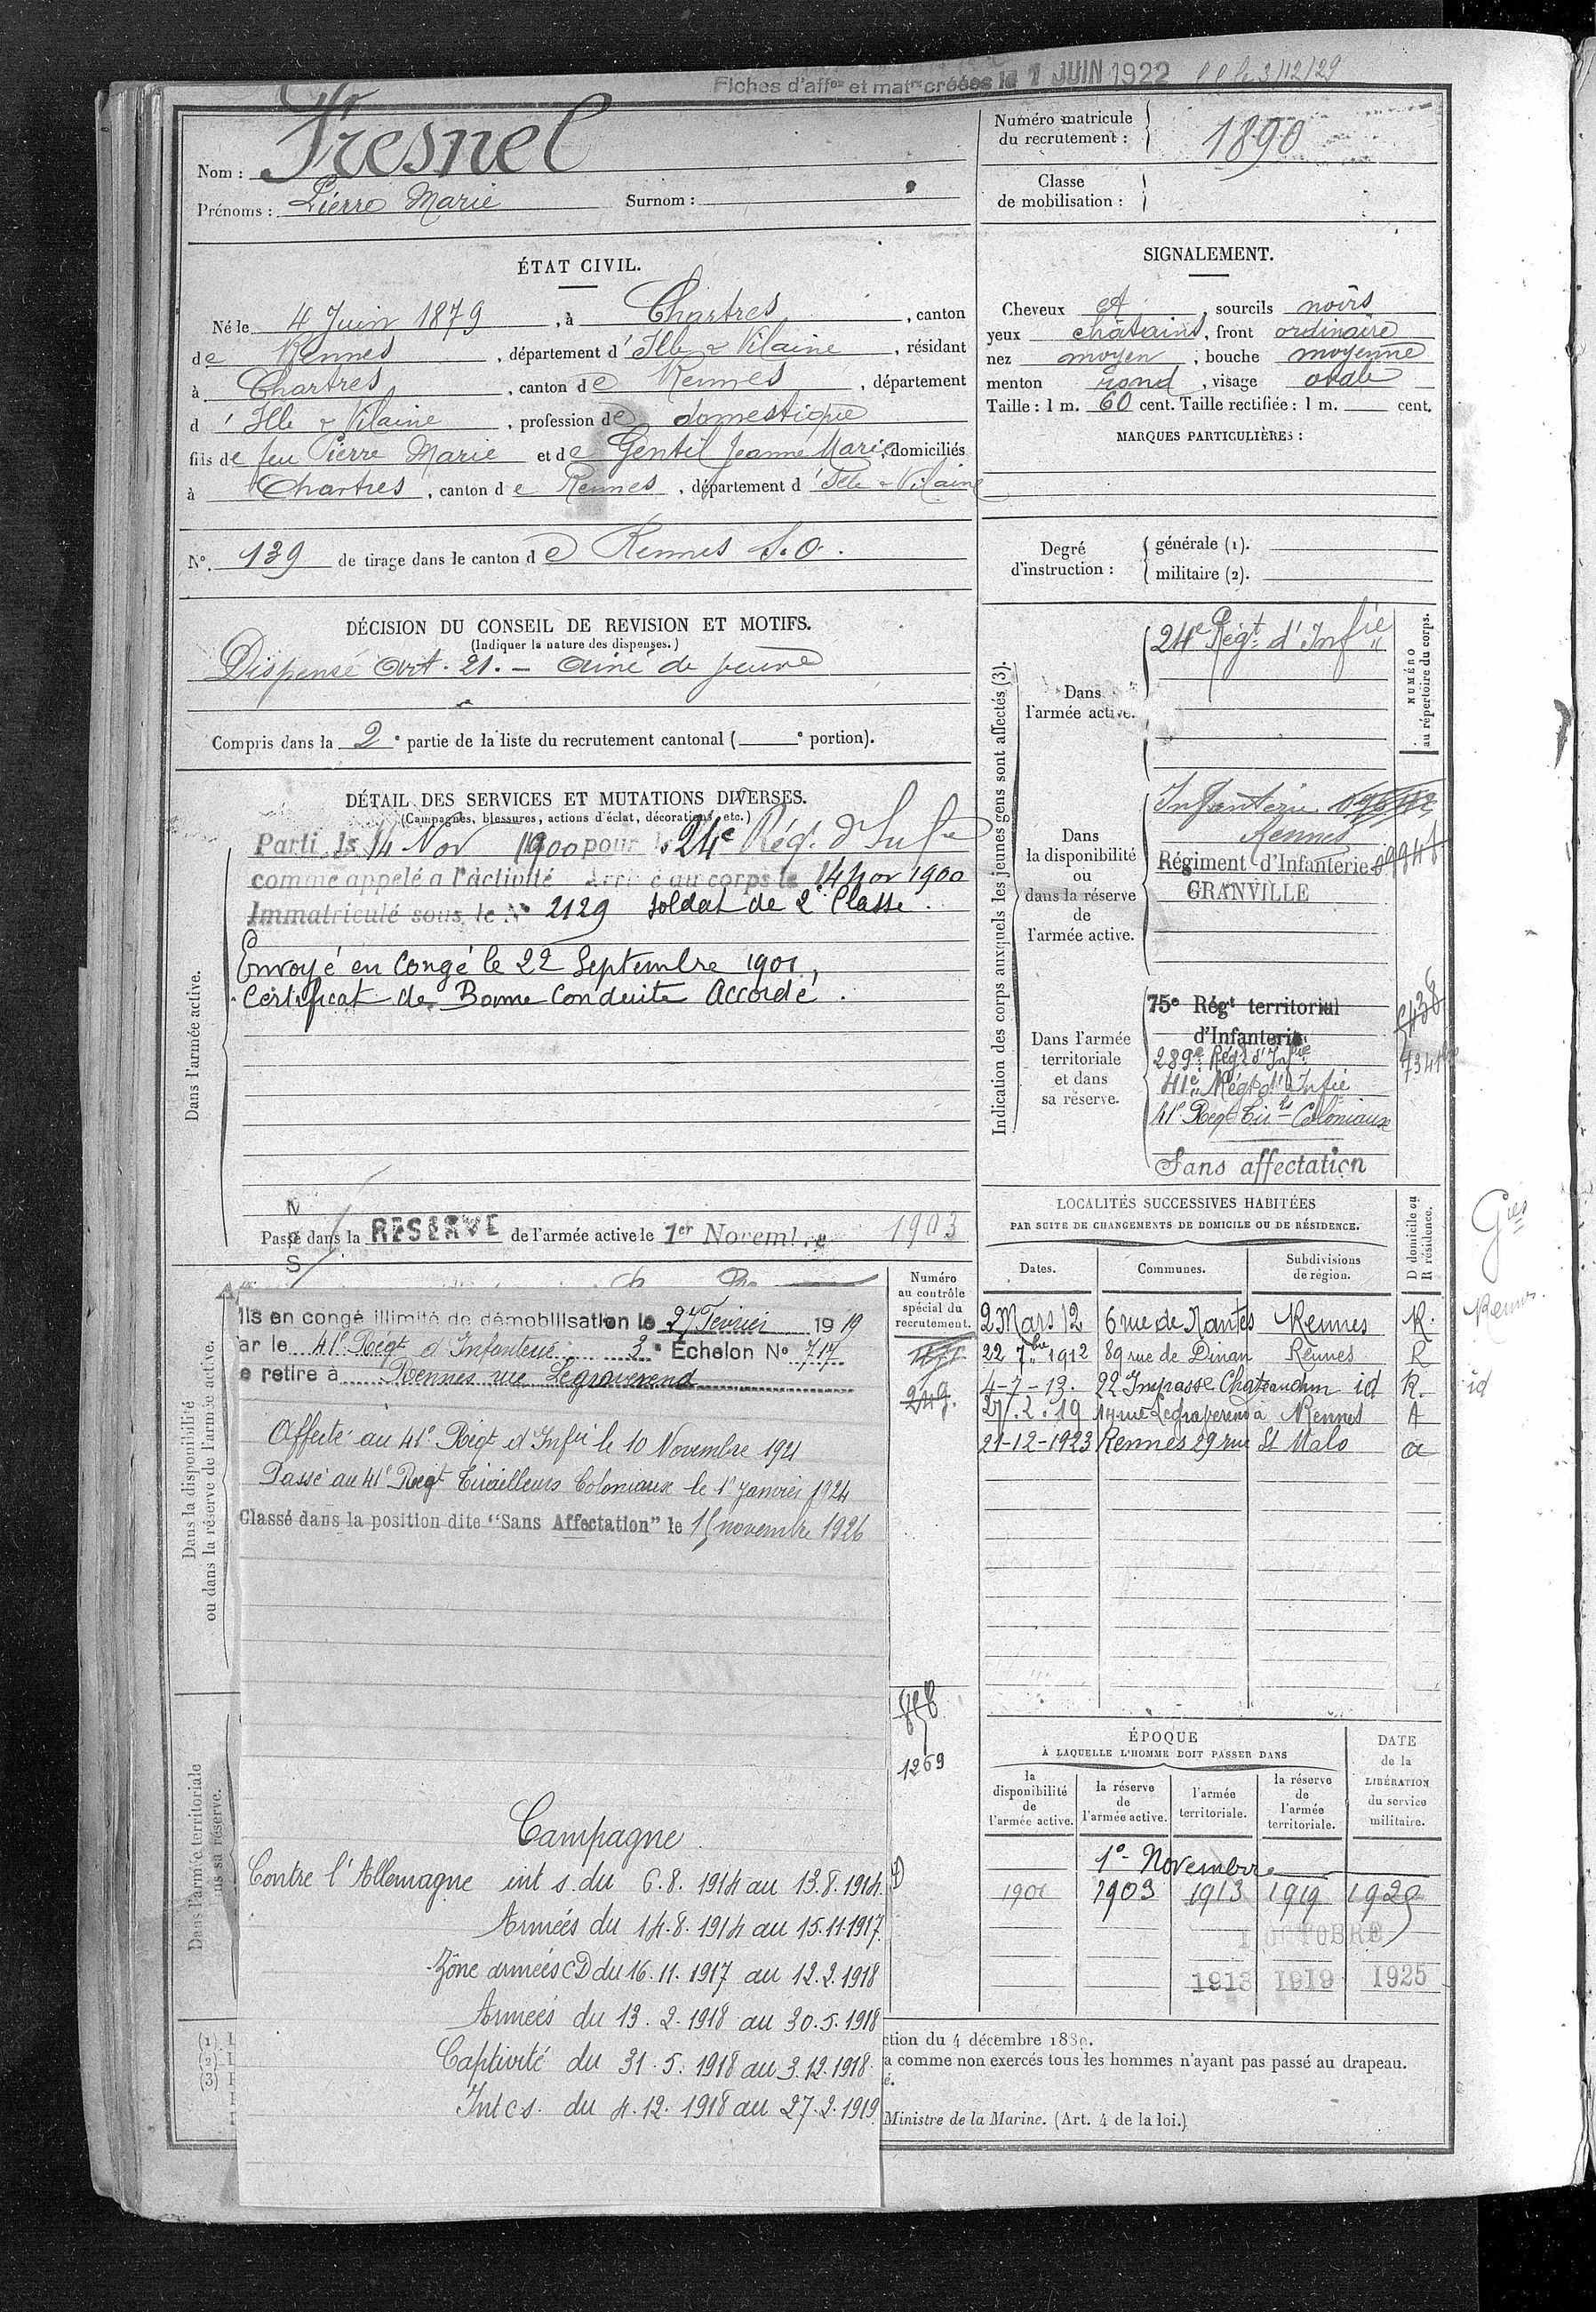 Fiches d'aff^on et mat^re créées le 1 JUIN 1922
3/12/29
Nom : Fresnel
Prénoms : Pierre Marie Surnom :
Numéro matricule du recrutement : 1890
Classe de mobilisation :
ÉTAT CIVIL.
Né le 4 Juin 1879, à Chartres, canton
de Rennes, département d'Ille & Vilaine, résidant
à Chartres, canton de Rennes, département
d'Ille & Vilaine, profession de domestique
fils de feu Pierre Marie et de Gentil Jeanne Marie, domiciliés
à Chartres, canton de Rennes, département d'Ille & Vilaine
N° 139 de tirage dans le canton de Rennes S.O.
SIGNALEMENT.
Cheveux et, sourcils noirs
yeux châtains, front ordinaire
nez moyen, bouche moyenne
menton rond, visage ovale
Taille : 1 m. 60 cent. Taille rectifiée : 1 m. cent.
MARQUES PARTICULIÈRES :
Degré d'instruction :
générale (1).
militaire (2).
DÉCISION DU CONSEIL DE REVISION ET MOTIFS.
(Indiquer la nature des dispenses.)
Dispensé Art. 21. – Ainé de veuve
Compris dans la 2e partie de la liste du recrutement cantonal ( e portion).
DÉTAIL DES SERVICES ET MUTATIONS DIVERSES.
(Campagnes, blessures, actions d'éclat, décorations, etc.)
Dans l'armée active.
Parti le 14 Nov 1900 pour le 24e Rég. d'Infie
comme appelé a l'activité Arrivé au corps le 14 nov 1900
Immatriculé sous le N° 2129 Soldat de 2e Classe.
Envoyé en Congé le 22 Septembre 1901,
Certificat de Bonne Conduite Accordé.
Passé dans la RESERVE de l'armée active le 1er Novembre 1903
Indication des corps auxquels les jeunes gens sont affectés (3).
NUMÉRO au répertoire du corps.
Dans l'armée active.
24e Régt d'Infie
Dans la disponibilité ou dans la réserve de l'armée active.
Infanterie
Rennes
Régiment d'Infanterie
GRANVILLE
Dans l'armée territoriale et dans sa réserve.
75e Régt territorial
d'Infanterie
289e Régt d'Infie
41e Régt d'Infie
41e Regt Tirrs Coloniaux
Sans affectation
LOCALITÉS SUCCESSIVES HABITÉES
PAR SUITE DE CHANGEMENTS DE DOMICILE OU DE RÉSIDENCE.
Dates. Communes. Subdivisions de région. D domicile ou R résidence.
2 Mars 12 6 rue de Nantes Rennes R.
22 7bre 1912 89 rue de Dinan Rennes R
4-7-13. 22 Impasse Chateaudun id R.
27.2.19 14 rue Legraverend à Rennes A
21-12-1923 Rennes 29 rue St Malo a
Rennes.
id
Dans la disponibilité ou dans la réserve de l'armée active.
Numéro au contrôle spécial du recrutement.
249.
1269
Mis en congé illimité de démobilisation le 27 Fevrier 1919
ar le 41e Régt d'Infanterie 3e Échelon N° 717
e retire à Rennes rue Legraverend
Affecté au 41e Régt d'Infie le 10 Novembre 1921
Passé au 41e Regt Tirailleurs Coloniaux le 1er Janvier 1924
Classé dans la position dite "Sans Affectation" le 15 novembre 1926
Dans l'armée territoriale
ns sa réserve.
Campagne
Contre l'Allemagne int s. du 6.8.1914 au 13.8.1914.
Armées du 14.8.1914 au 15.11.1917.
Zône armées CD du 16.11.1917 au 12.2.1918
Armées du 13.2.1918 au 30.5.1918
Captivité du 31.5.1918 au 3.12.1918.
Int cs. du 4.12.1918 au 27.2.1919
ÉPOQUE
À LAQUELLE L'HOMME DOIT PASSER DANS
la disponibilité de l'armée active. la réserve de l'armée active. l'armée territoriale. la réserve de l'armée territoriale.
DATE de la LIBÉRATION du service militaire.
1er Novembre
1901 1903 1913 1919 1925
1 OCTOBRE
1913 1919 1925
ction du 4 décembre 1889.
a comme non exercés tous les hommes n'ayant pas passé au drapeau.
é.
Ministre de la Marine. (Art. 4 de la loi.)